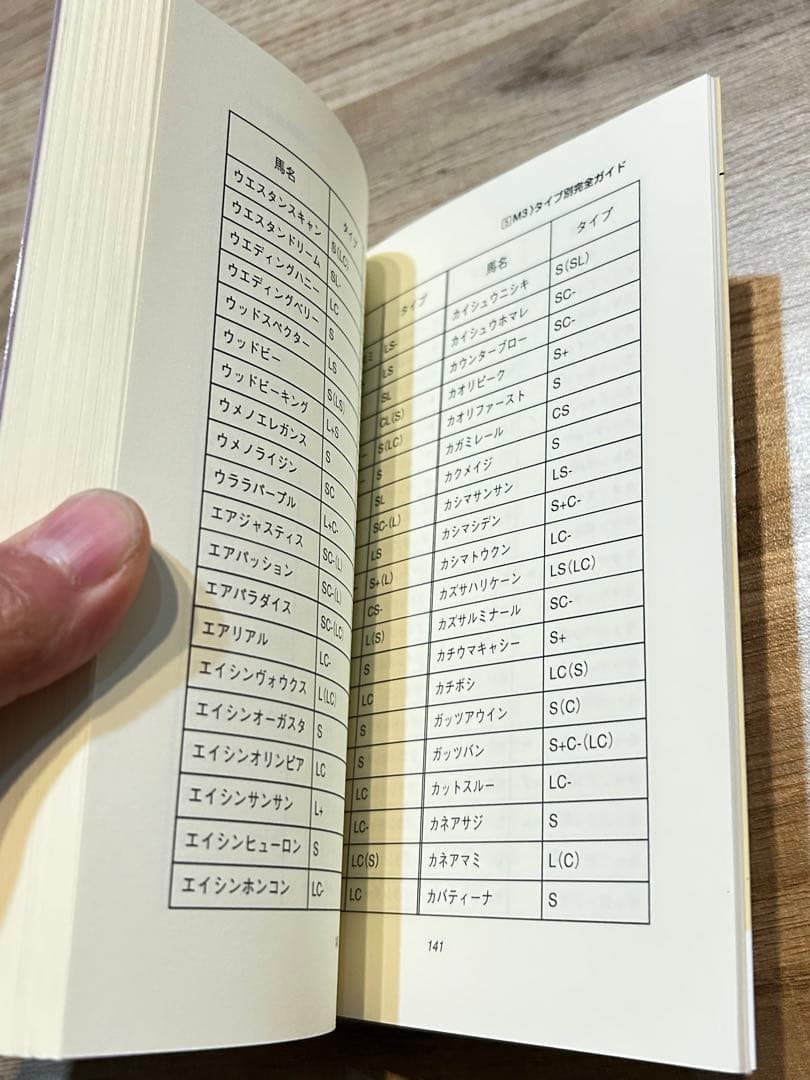 馬名 タイプ
ウエスタンスキャン S(LC)
ウエスタンドリーム SL-
ウエディングハニー LC
ウエディングベリー S
ウッドスペクター LS
ウッドビー S(LS)
ウッドビーキング L+S
ウメノエレガンス S
ウメノライジン SC
ウララパープル L+C-
エアジャスティス SC-(L)
エアパッション SC-(L)
エアパラダイス SC-(LC)
エアリアル LC-
エイシンヴォウクス L(LC)
エイシンオーガスタ S
エイシンオリンピア LC
エイシンサンサン L+
エイシンヒューロン S
エイシンホンコン LC-
5 M3)タイプ別完全ガイド
タイプ 馬名 タイプ
ミ LS- カイシュウニシキ S(SL)
LS カイシュウホマレ SC-
SL カウンターブロー SC-
CL(S) カオリピーク S+
S(LC) カオリファースト S
S カガミレール CS
SL カクメイジ S
SC-(L) カシマサンサン LS-
LS カシマシデン S+C-
S+(L) カシマトウクン LC-
CS- カズサハリケーン LS(LC)
L(S) カズサルミナール SC-
S カチウマキャシー S+
LC カチボシ LC(S)
S ガッツアウイン S(C)
S ガッツバン S+C-(LC)
LC カットスルー LC-
LC- カネアサジ S
LC(S) カネアマミ L(C)
LC カバティーナ S
141